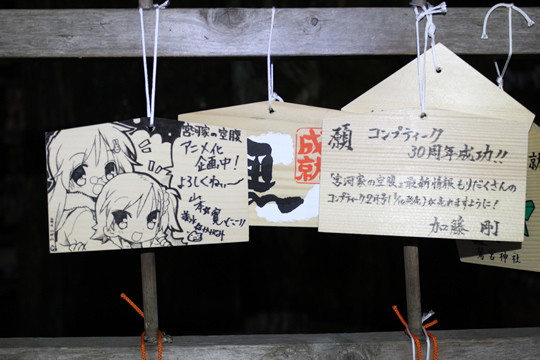 宮河家の空腹
アニメ化
企画中!
よろしくねぃぃ〜
山本寛
成就
願 コンプティーク
30周年成功!!
「宮河家の空腹」最新情報もりだくさんの
コンプティーク2月号(1/10発売)が売れますように!
加藤 剛
神社